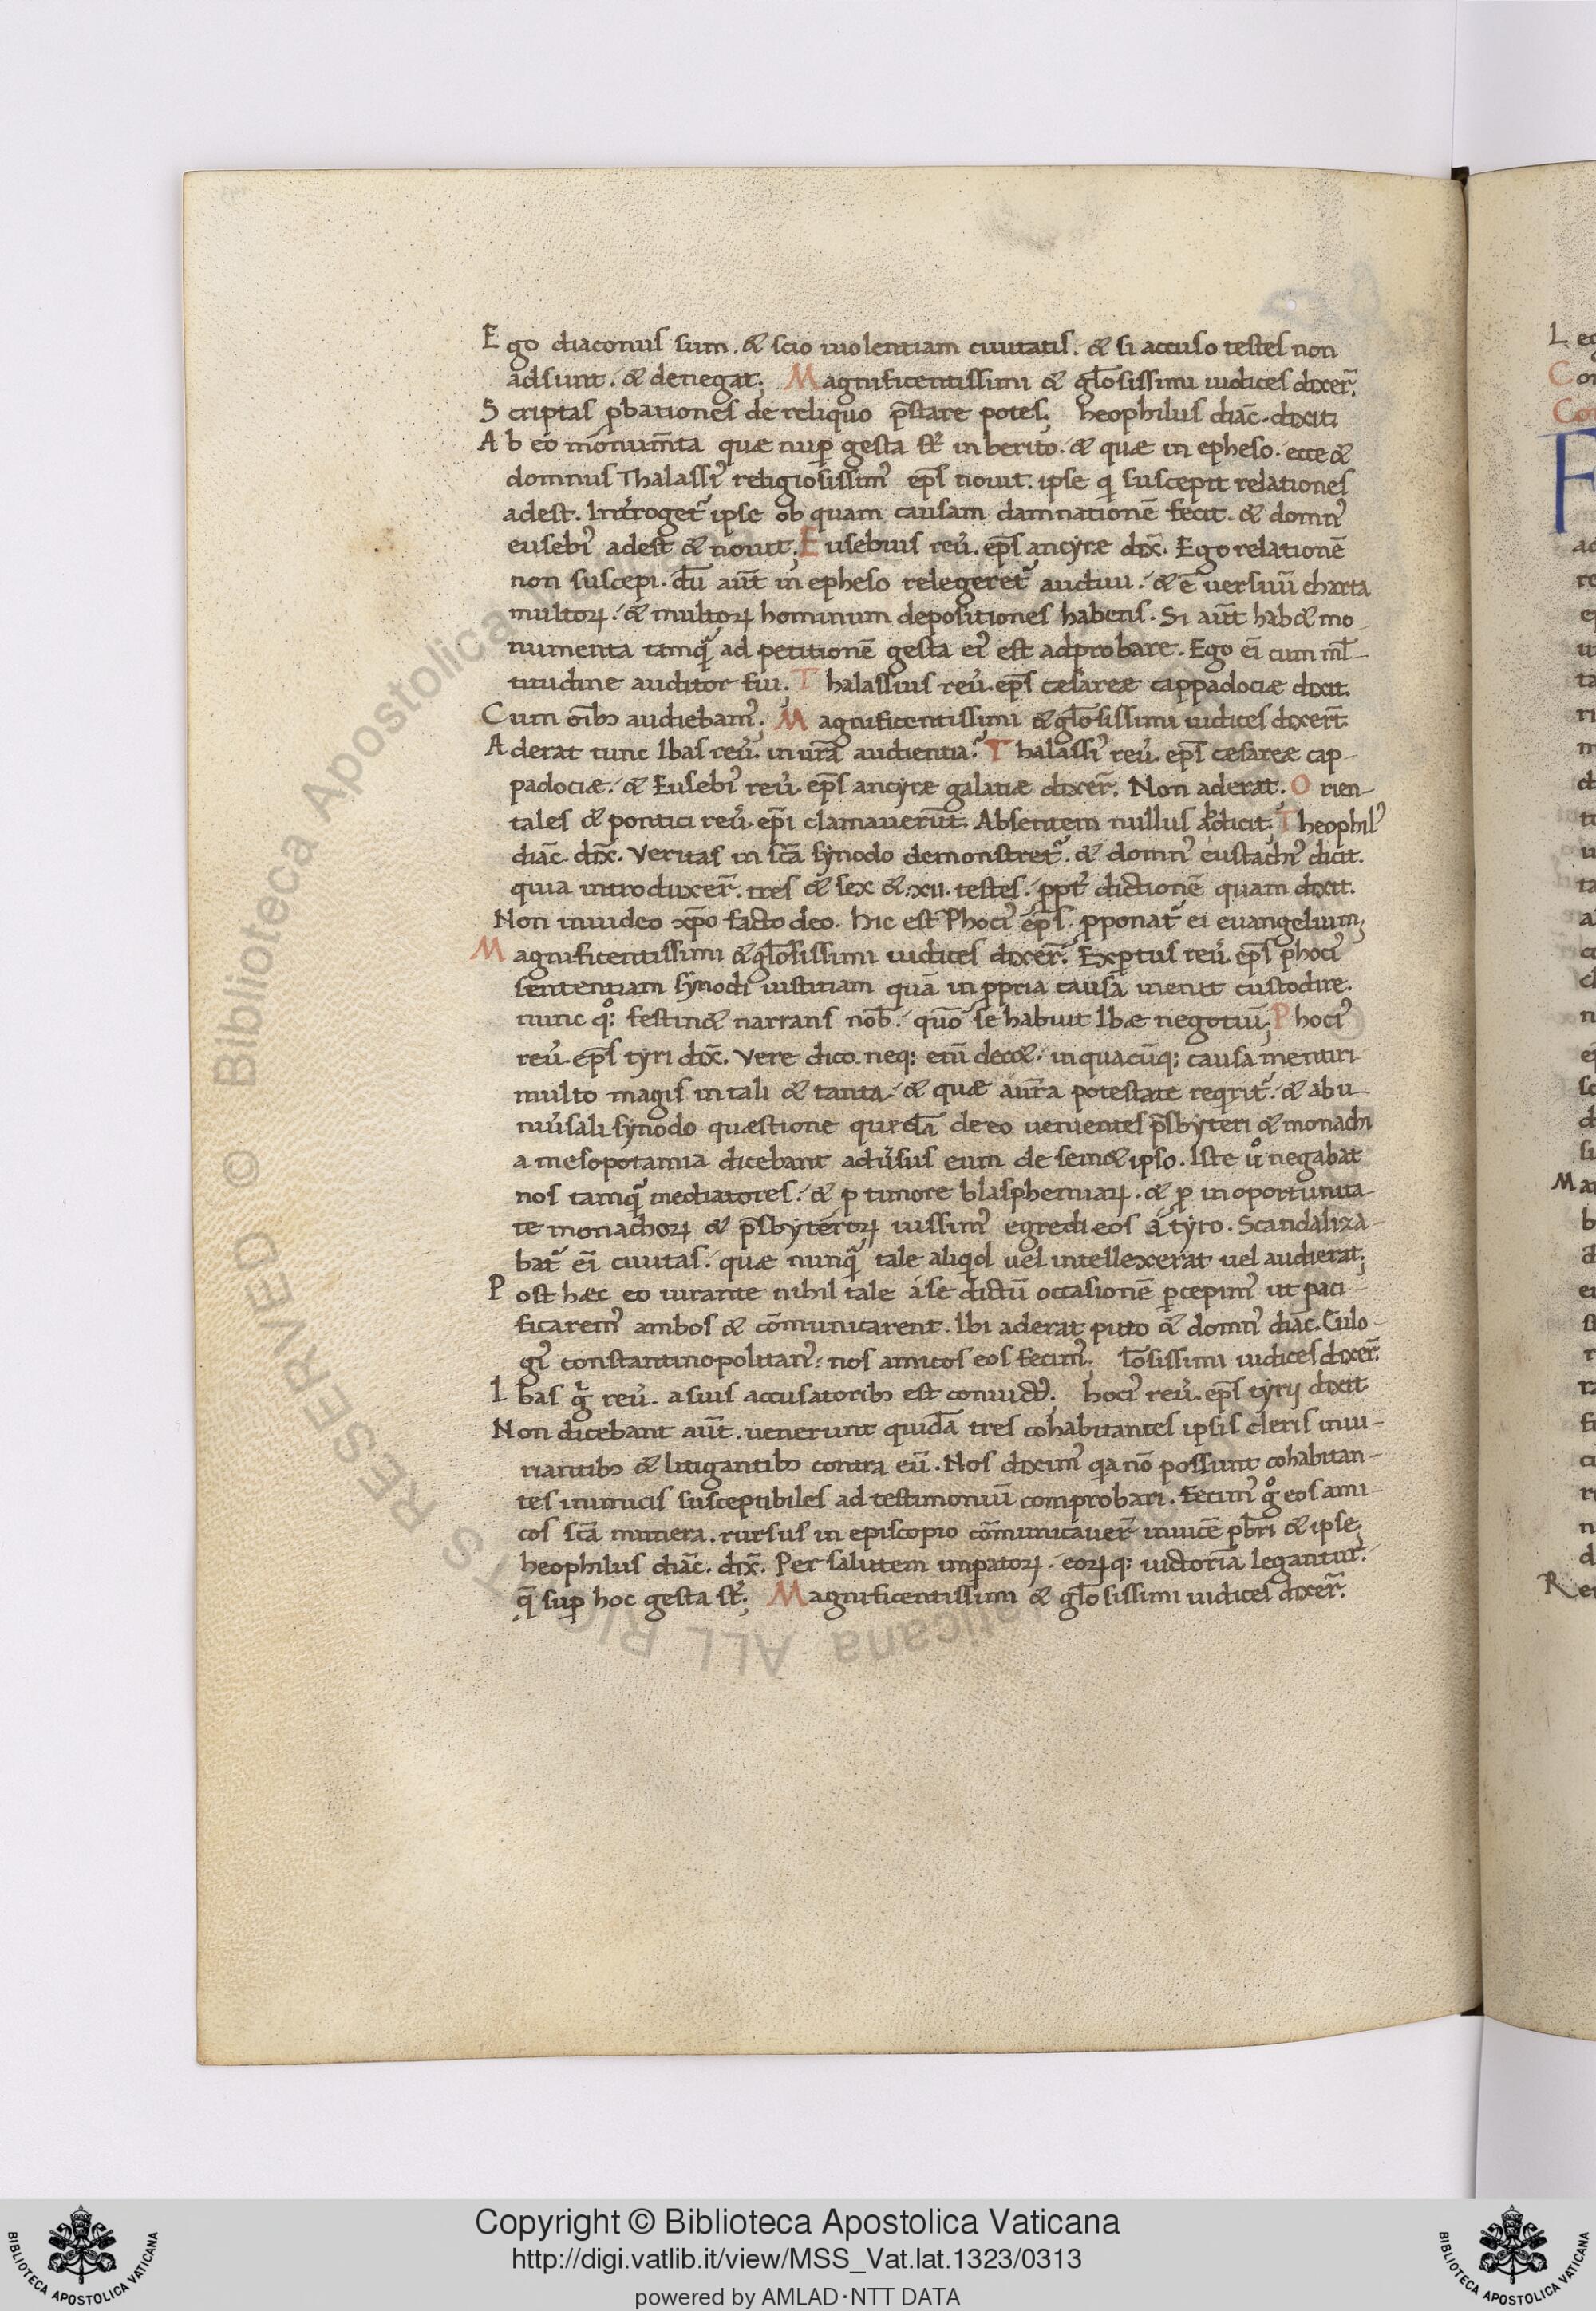 Ego diaconus sum. & scio uiolentiam ciuitatis. & si accuso testes non
adsunt. & denegat; Magnificentissimi & gl̄osissimi iudices dixer̄.
Scriptas p̱bationes de reliquo p̄stare potes; heophilus diac̄. dixit;
Ab eo monum̄ta quæ nup̱ gesta st̄ in berito. & quæ in epheso. ecce &
domnus Thalassiꝰ religiosissimꝰ ep̄s nouit. ipse qi suscepit relationes
adest. Int̄roget̃ ipse ob quam causam damnationē fecit. & domnꝰ
eusebiꝰ adest & nouit; Eusebius reu̓. ep̄s ancyræ dix̄. Ego relationē
non suscepi. dū aūt in epheso relegeret̃ audiui. & ē uersuū charta
multoꝝ. & multoꝝ hominum depositiones habens. Si aūt hab& mo
numenta tamq̃ ad petitionē gesta eiꝰ est adprobare. Ego ei̅ cum ml̄
titudine auditor fui; Thalassius reu̓. ep̄s cæsareæ cappadociæ dixit.
Cum oi̅bꝫ audiebamꝰ; Magnificentissimi & gl̄osissimi iudices dixer̄t.
Aderat tunc Ibas reu̓. in ur̄a audientia. Thalassiꝰ reu̓. ep̄s cæsareæ cap-
padociæ. & Eusebiꝰ reu̓. ep̄s ancyræ galatiæ dixer̄. Non aderat. Orien-
tales & pontici reu̓. ep̄i clamauerūt. Absentem nullus addicit; Theophilꝰ
diac̄. dix̄. Veritas in sc̄a synodo demonstret̃. & domnꝰ eustachiꝰ dicit.
quia introduxer̄. tres & sex &. xii. testes. p̱pt̓ dictionē quam dixit.
Non inuideo xp̄o facto deo. hic est Phociꝰ ep̄s. p̱ponat̃ ei euangelium;
Magnificentissimi & gl̄osissimi iudices dixer̄. Exp̱tus reu̓. ep̄s phociꝰ
sententiam synodi iustitiam quā in p̱pria causa inenit custodire.
nunc qͦꝫ festin& narrans nob̄. quō se habuit Ibæ negotiū; Phociꝰ
reu̓. ep̄s tyri dix̄. Vere dico. neqꝫ eni̅ dec&. in quacūqꝫ causa mentiri
multo magis in tali & tanta. & quæ a ur̄a potestate reqirit̃. & ab u
niu̓sali synodo quæstione quedā de eo uenientes p̄sbyteri & monachi
a mesopotamia dicebant adu̓sus eum de sem& ipso. Iste uͦ negabat
nos tamq̃ mediatores. & p timore blasphemiaꝝ. & p̱ inoportunita-
te monachoꝝ & p̄sbyteroꝝ iussimꝰ egredi eos a tyro. Scandaliza-
bat̃ ei̅ ciuitas. quæ nunq̃ tale aliqid uel intellexerat uel audierat;
Post hæc eo iurante nihil tale a se dictū occasionē p̱cepimꝰ ut paci-
ficaremꝰ ambos & cōmunicarent. Ibi aderat puto & domnꝰ diac̄. Eulo-
giꝰ constantinopolitanꝰ. nos amicos eos fecimꝰ. l̄osissimi iudices dixer̄.
Ibas g̃ reu̓. a suis accusatoribꝫ est conuictꝰ. hociꝰ reu̓. ep̄s tyrij dixit
Non dicebant aūt. uenerunt quidā tres cohabitantes ipsis cleris iniu-
riantibꝫ & litigantibꝫ contra eū. Nos diximꝰ qia nō possunt cohabitan-
tes inimicis susceptibiles ad testimoniū comprobari. fecimꝰ gͦ eos ami-
cos sc̄a munera. rursus in episcopio cōmunicauer̄ inuicē pb̄ri & ipse;
heophilus diac̄. dix̄. Per salutem imp̱atoꝝ. eoꝝqꝫ uictoriā legantur.
q̄ sup̱ hoc gesta st̄; Magnificentissimi & gl̄osissimi iudices dixer̄.
Copyright © Biblioteca Apostolica Vaticana
http://digi.vatlib.it/view/MSS_Vat.lat.1323/0313
powered by AMLAD·NTT DATA